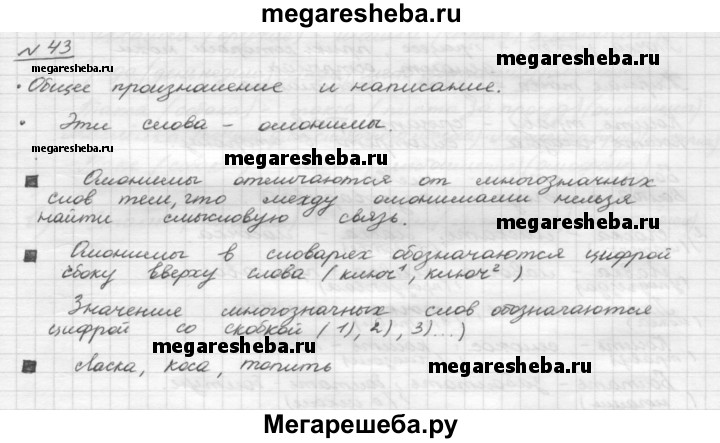 megaresheba.ru
№ 43
megaresheba.ru
megaresheba.ru
• Общее произношение и написание.
• Эти слова - омонимы.
megaresheba.ru
Омонимы отличаются от многозначных
слов тем, что между омонимами нельзя
найти смысловую связь.
megaresheba.ru
Омонимы в словарях обозначаются цифрой
сбоку вверху слова (ключ¹, ключ²)
Значение многозначных слов обозначаются
цифрой со скобкой (1), 2), 3)...)
megaresheba.ru
megaresheba.ru
Ласка, коса, топить
Мегарешеба.ру